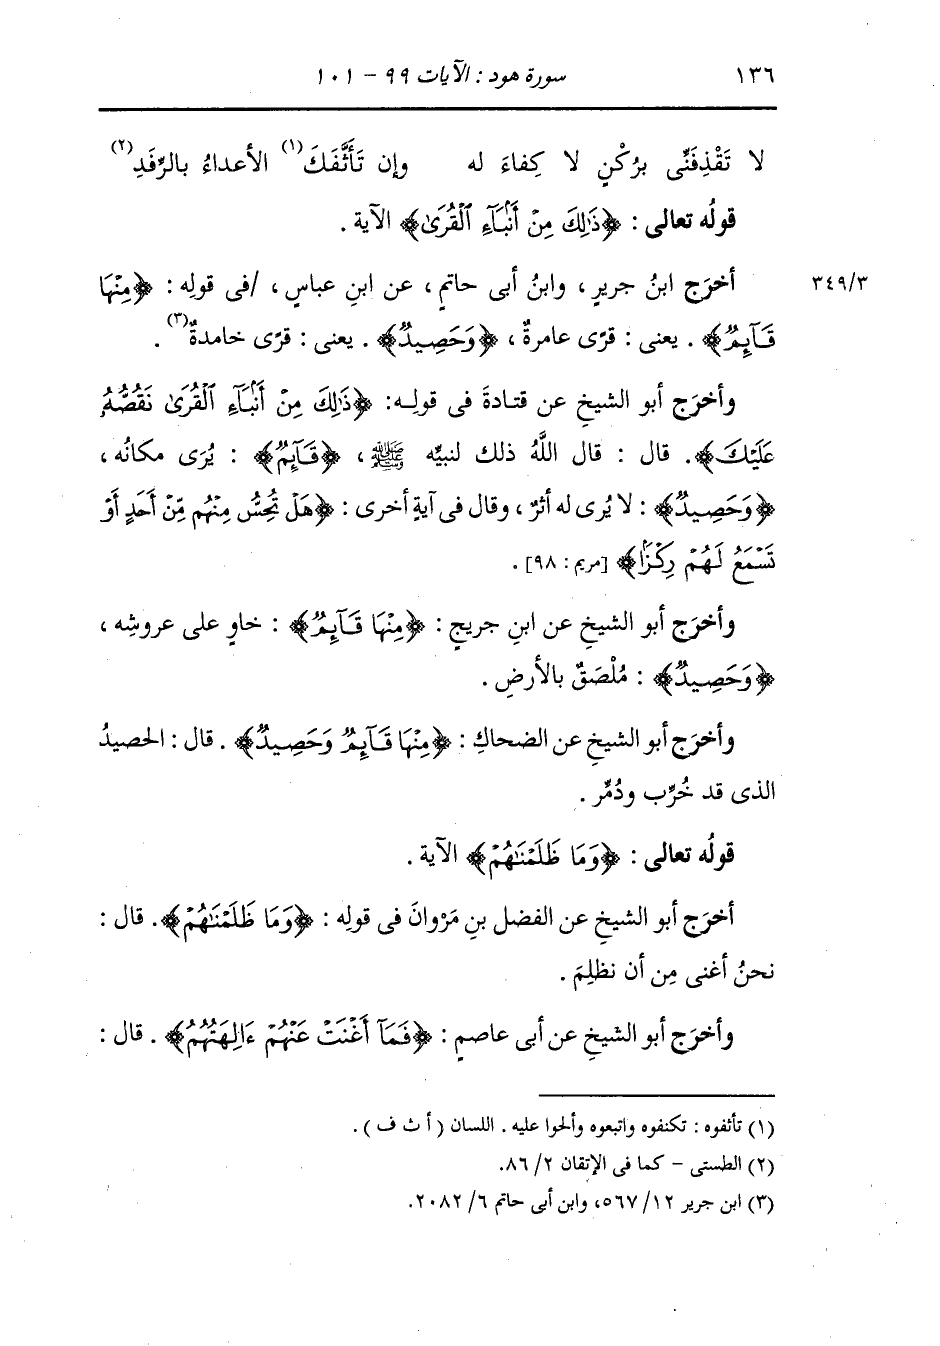 ١٣٦ سورة هود : الآيات ٩٩ - ١٠١
لا تَقْذِفَنِّى بِرُكْنٍ لا كِفاءَ له وإن تَأَثَّفَكَ(١) الأعداءُ بالرِّفَدِ(٢)
قولُه تعالى : ﴿ذَٰلِكَ مِنْ أَنۢبَآءِ ٱلْقُرَىٰ﴾ الآية .
٣٤٩/٣ أخرَج ابنُ جريرٍ ، وابنُ أبى حاتمٍ ، عن ابنِ عباسٍ ، /فى قولِه : ﴿مِنْهَا
قَآئِمٌ﴾ . يعنى : قرًى عامرةٌ ، ﴿وَحَصِيدٌ﴾ . يعنى : قرًى خامدةٌ(٣) .
وأخرَج أبو الشيخِ عن قتادةَ فى قولِه: ﴿ذَٰلِكَ مِنْ أَنۢبَآءِ ٱلْقُرَىٰ نَقُصُّهُۥ
عَلَيْكَ﴾. قال : قال اللَّهُ ذلك لنبيِّه ﷺ ، ﴿قَآئِمٌ﴾ : يُرَى مكانُه ،
﴿وَحَصِيدٌ﴾ : لا يُرى له أثرٌ ، وقال فى آيةٍ أخرى : ﴿هَلْ تُحِسُّ مِنْهُم مِّنْ أَحَدٍ أَوْ
تَسْمَعُ لَهُمْ رِكْزًۢا﴾ [مريم : ٩٨] .
وأخرَج أبو الشيخِ عن ابنِ جريجٍ : ﴿مِنْهَا قَآئِمٌ﴾ : خاوٍ على عروشِه ،
﴿وَحَصِيدٌ﴾ : مُلْصَقٌ بالأرضِ .
وأخرَج أبو الشيخِ عن الضحاكِ : ﴿مِنْهَا قَآئِمٌ وَحَصِيدٌ﴾ . قال : الحصيدُ
الذى قد خُرِّب ودُمِّر .
قولُه تعالى : ﴿وَمَا ظَلَمْنَٰهُمْ﴾ الآية .
أخرَج أبو الشيخِ عن الفضل بنِ مَرْوانَ فى قولِه : ﴿وَمَا ظَلَمْنَٰهُمْ﴾. قال :
نحنُ أغنى مِن أن نظلِمَ .
وأخرَج أبو الشيخِ عن أبى عاصمٍ : ﴿فَمَآ أَغْنَتْ عَنْهُمْ ءَالِهَتُهُمُ﴾ . قال :
(١) تأثفوه : تكنفوه واتبعوه وألحوا عليه . اللسان ( أ ث ف ) .
(٢) الطستى - كما فى الإتقان ٢/ ٨٦.
(٣) ابن جرير ١٢/ ٥٦٧، وابن أبى حاتم ٦/ ٢٠٨٢.